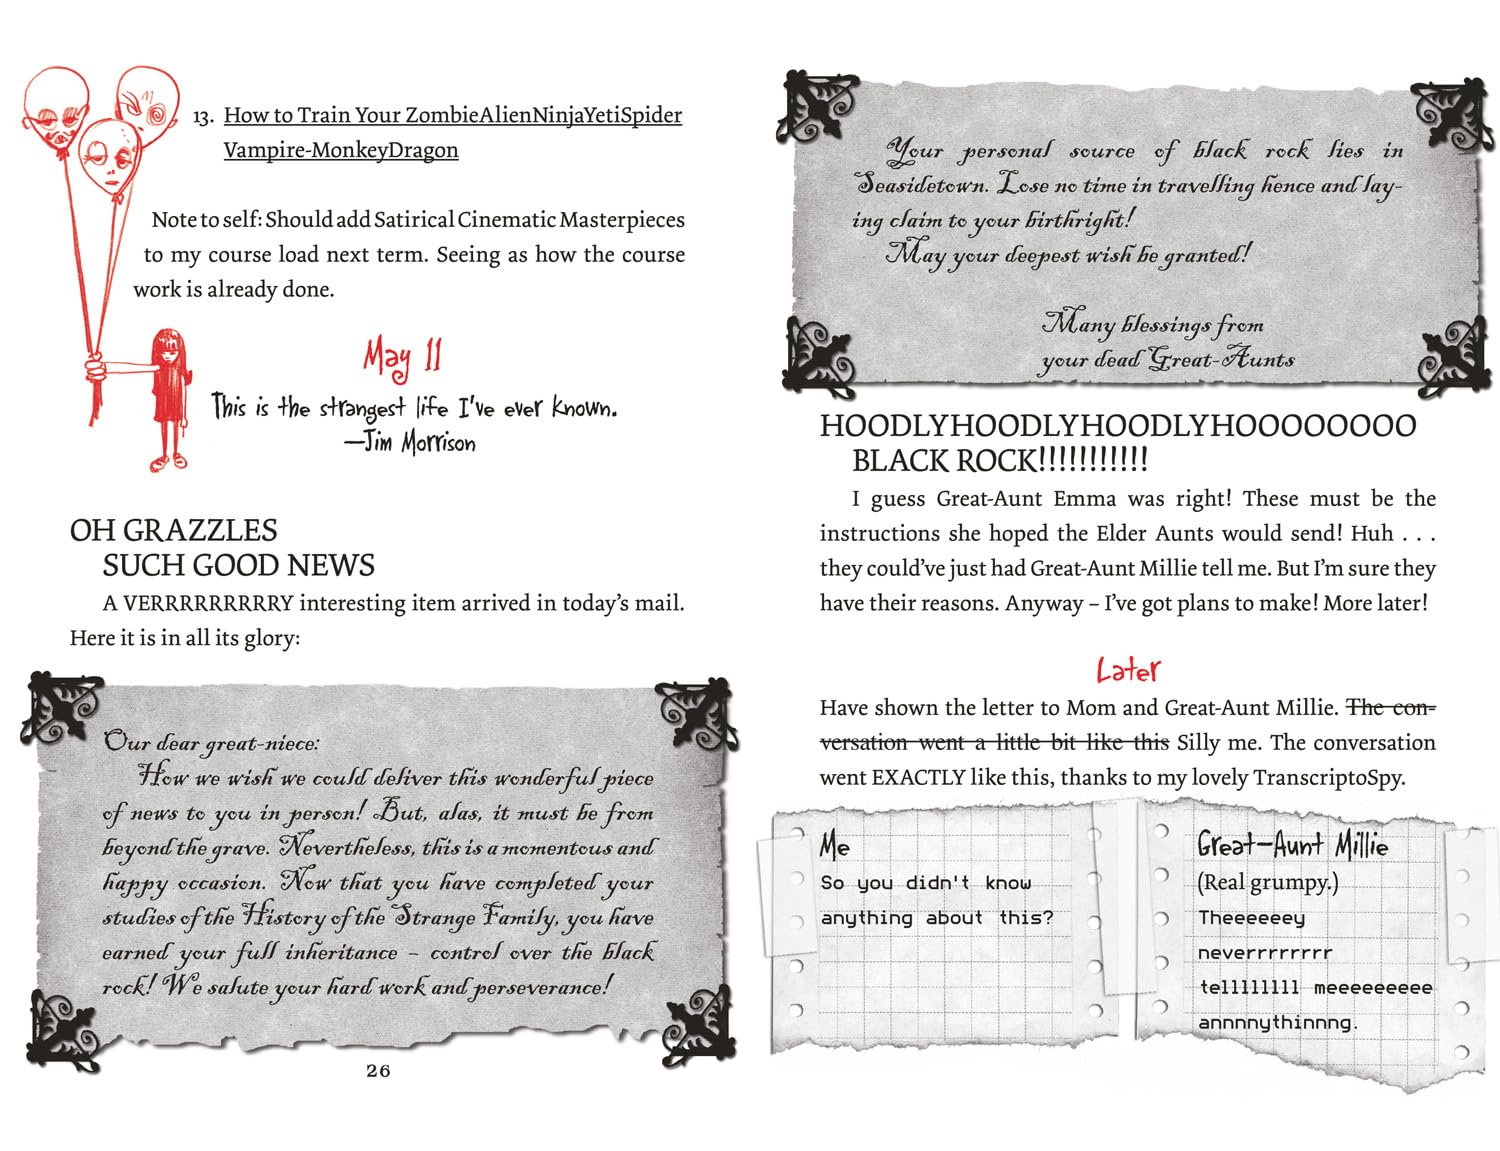 13. How to Train Your ZombieAlienNinjaYetiSpider
Vampire-MonkeyDragon
Note to self: Should add Satirical Cinematic Masterpieces
to my course load next term. Seeing as how the course
work is already done.
May 11
This is the strangest life I've ever known.
—Jim Morrison
OH GRAZZLES
SUCH GOOD NEWS
A VERRRRRRRRRY interesting item arrived in today's mail.
Here it is in all its glory:
Our dear great-niece:
How we wish we could deliver this wonderful piece
of news to you in person! But, alas, it must be from
beyond the grave. Nevertheless, this is a momentous and
happy occasion. Now that you have completed your
studies of the History of the Strange Family, you have
earned your full inheritance – control over the black
rock! We salute your hard work and perseverance!
26
Your personal source of black rock lies in
Seasidetown. Lose no time in travelling hence and lay-
ing claim to your birthright!
May your deepest wish be granted!
Many blessings from
your dead Great-Aunts
HOODLYHOODLYHOODLYHOOOOOOOO
BLACK ROCK!!!!!!!!!!!
I guess Great-Aunt Emma was right! These must be the
instructions she hoped the Elder Aunts would send! Huh . . .
they could've just had Great-Aunt Millie tell me. But I'm sure they
have their reasons. Anyway – I've got plans to make! More later!
Later
Have shown the letter to Mom and Great-Aunt Millie. The con-
versation went a little bit like this Silly me. The conversation
went EXACTLY like this, thanks to my lovely TranscriptoSpy.
Me
So you didn't know
anything about this?
Great-Aunt Millie
(Real grumpy.)
Theeeeeey
neverrrrrrrr
tellllllll meeeeeeeeee
annnnythinnng.